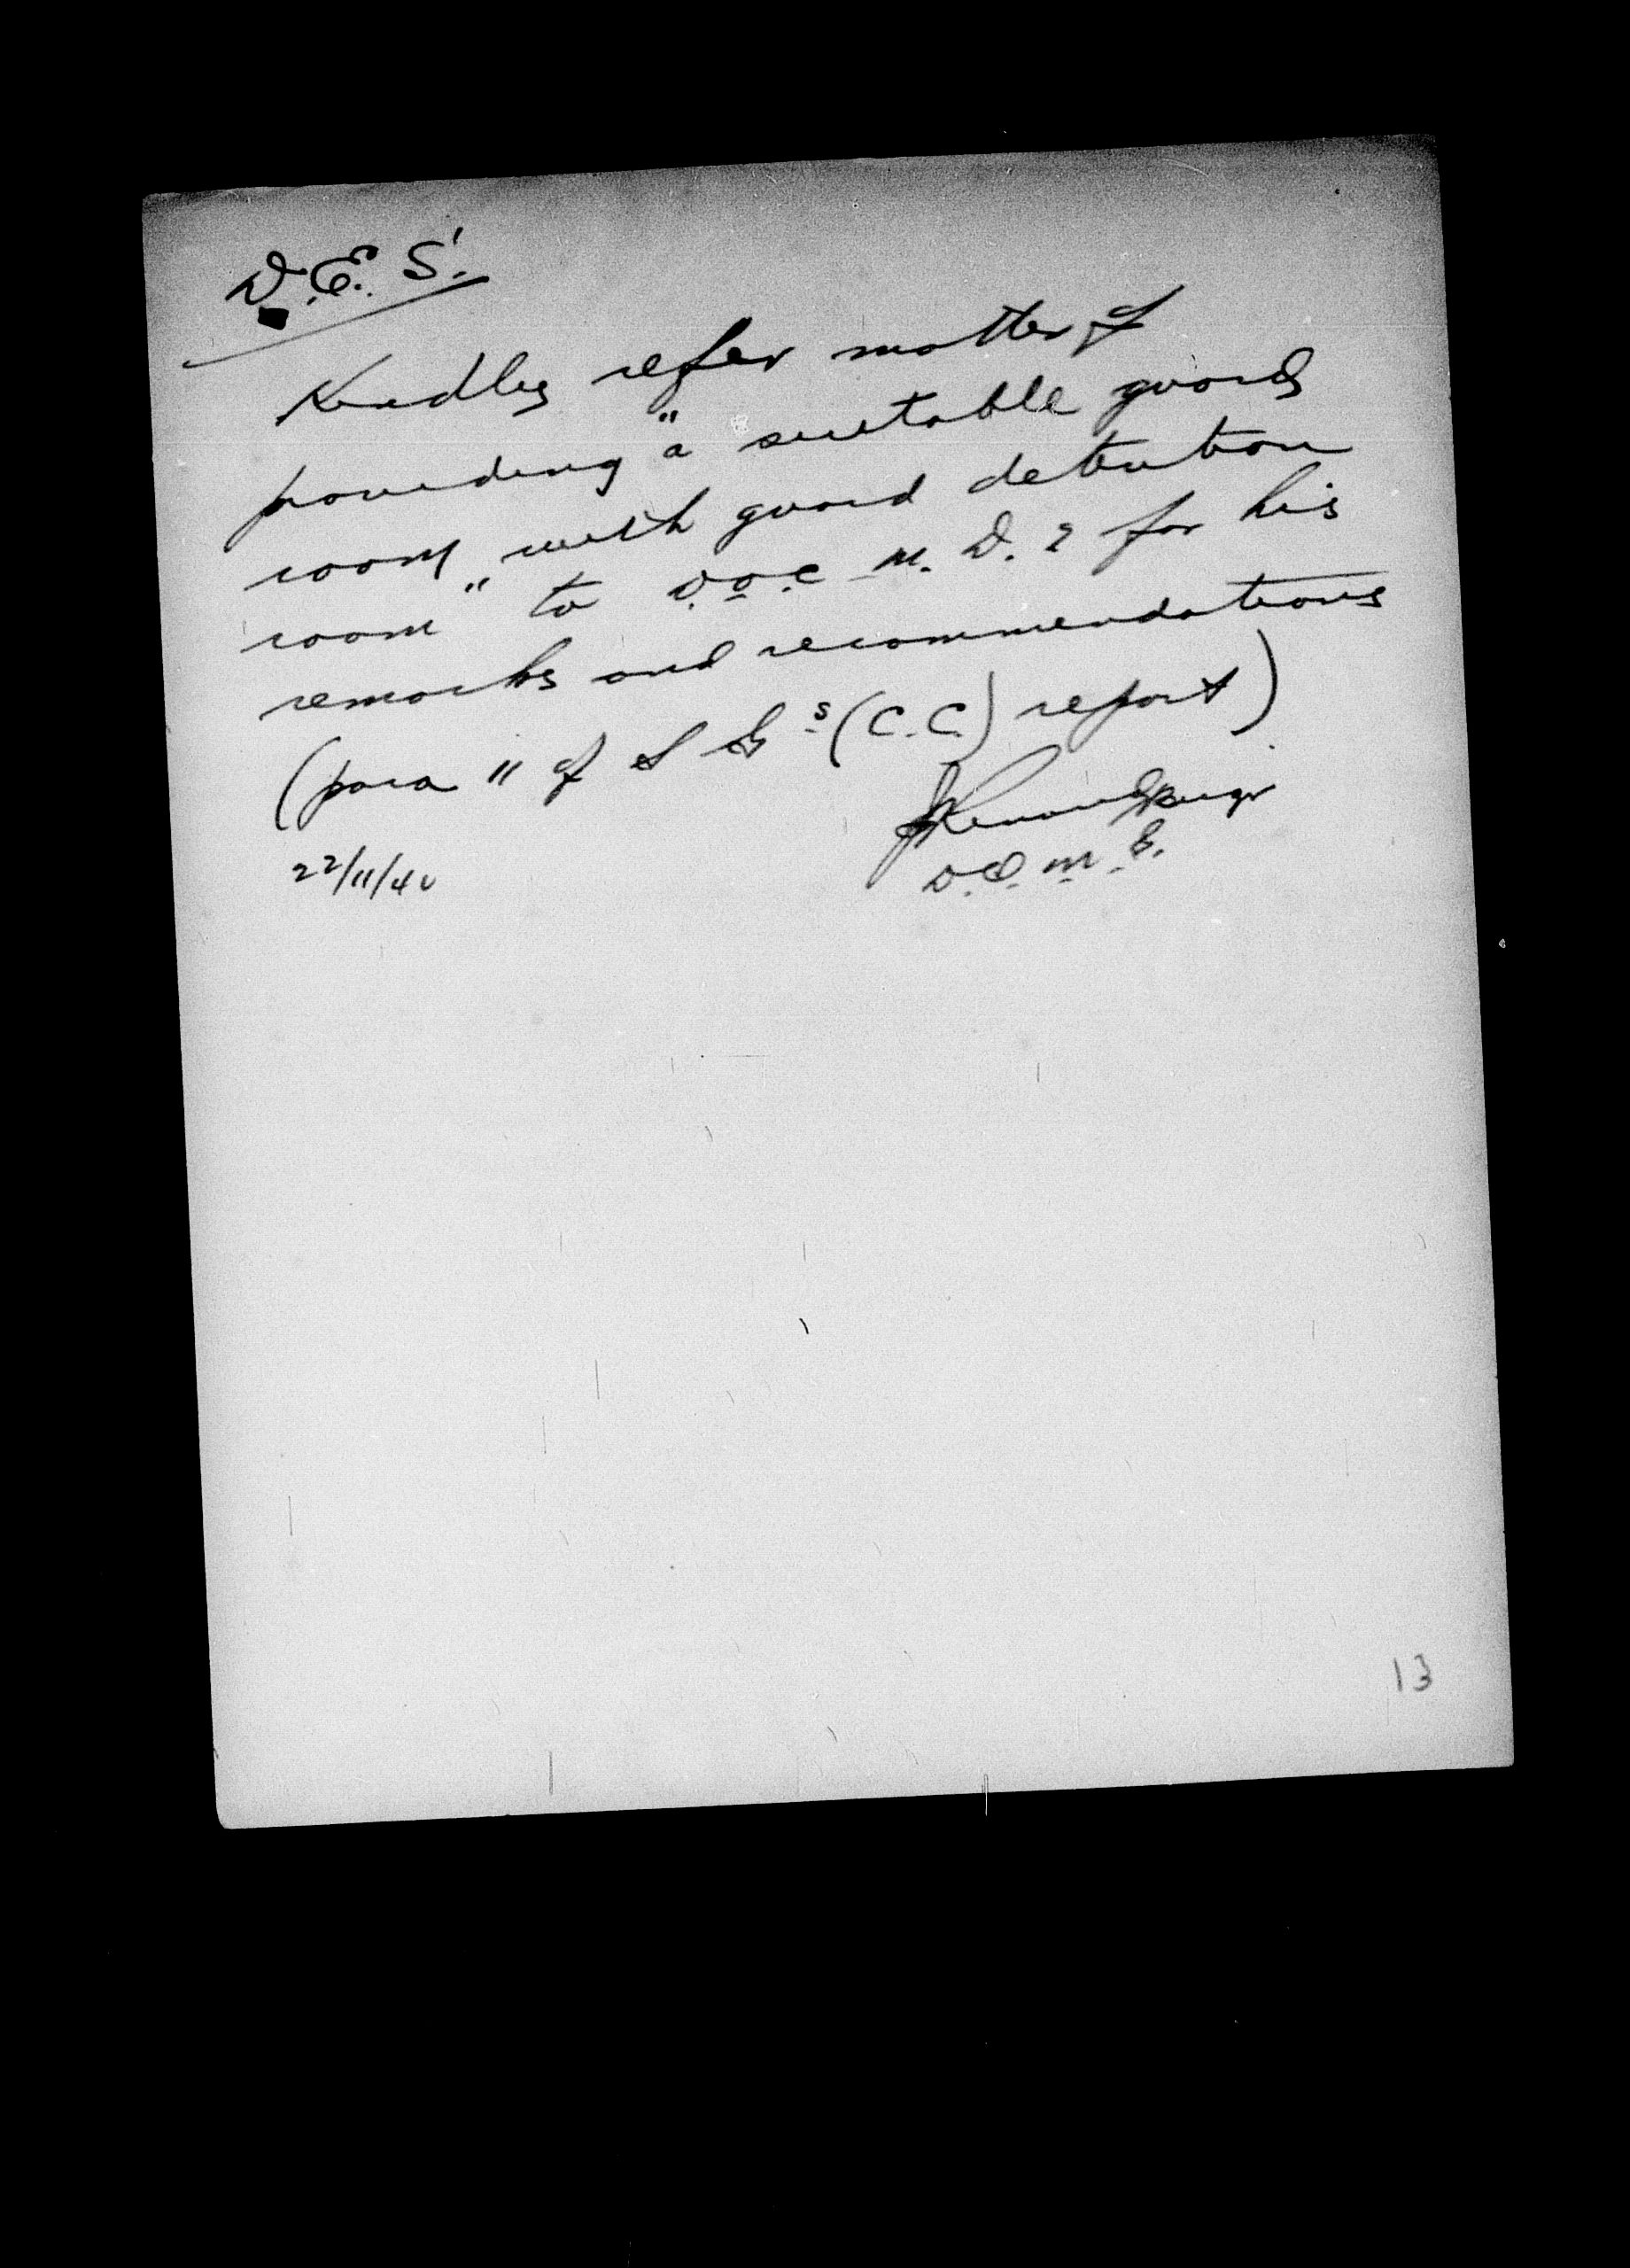 D.E.S.
Kindly refer matter of
providing "a suitable guard
room with guard detention
room" to D.O.C M.D. 2 for his
remarks and recommendations
(para 11 of I G's (C.C.) report)
22/11/40
Q.M.G.
13